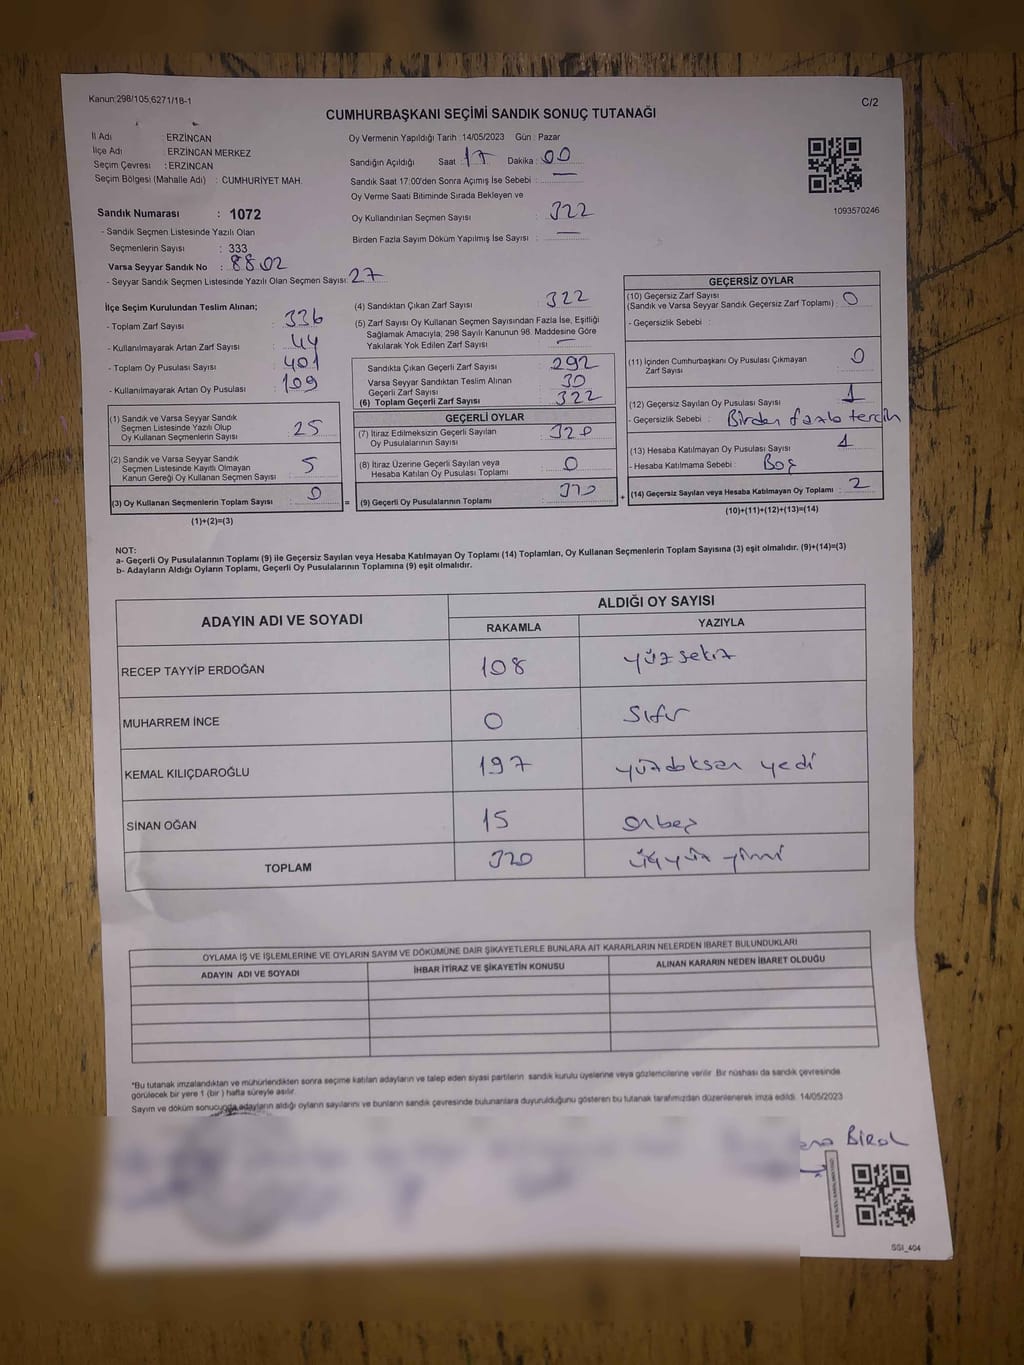 Kanun:298/105,6271/18-1
C/2
CUMHURBAŞKANI SEÇİMİ SANDIK SONUÇ TUTANAĞI
İl Adı : ERZİNCAN
İlçe Adı : ERZİNCAN MERKEZ
Seçim Çevresi : ERZİNCAN
Seçim Bölgesi (Mahalle Adı) : CUMHURİYET MAH.
Sandık Numarası : 1072
- Sandık Seçmen Listesinde Yazılı Olan
Seçmenlerin Sayısı : 333
Varsa Seyyar Sandık No : 8802
- Seyyar Sandık Seçmen Listesinde Yazılı Olan Seçmen Sayısı: 27
Oy Vermenin Yapıldığı Tarih : 14/05/2023 Gün : Pazar
Sandığın Açıldığı Saat : 17 Dakika : 00
Sandık Saat 17:00'den Sonra Açımış İse Sebebi : —
Oy Verme Saati Bitiminde Sırada Bekleyen ve
Oy Kullandırılan Seçmen Sayısı : 322
Birden Fazla Sayım Döküm Yapılmış İse Sayısı : —
1093570246
İlçe Seçim Kurulundan Teslim Alınan;
- Toplam Zarf Sayısı : 336
- Kullanılmayarak Artan Zarf Sayısı : 44
- Toplam Oy Pusulası Sayısı : 401
- Kullanılmayarak Artan Oy Pusulası : 109
(1) Sandık ve Varsa Seyyar Sandık
Seçmen Listesinde Yazılı Olup
Oy Kullanan Seçmenlerin Sayısı : 25
(2) Sandık ve Varsa Seyyar Sandık
Seçmen Listesinde Kayıtlı Olmayan
Kanun Gereği Oy Kullanan Seçmen Sayısı : 5
(3) Oy Kullanan Seçmenlerin Toplam Sayısı : 0
(1)+(2)=(3)
(4) Sandıktan Çıkan Zarf Sayısı : 322
(5) Zarf Sayısı Oy Kullanan Seçmen Sayısından Fazla İse, Eşitliği
Sağlamak Amacıyla; 298 Sayılı Kanunun 98. Maddesine Göre
Yakılarak Yok Edilen Zarf Sayısı : —
Sandıkta Çıkan Geçerli Zarf Sayısı : 292
Varsa Seyyar Sandıktan Teslim Alınan
Geçerli Zarf Sayısı : 30
(6) Toplam Geçerli Zarf Sayısı : 322
GEÇERLİ OYLAR
(7) İtiraz Edilmeksizin Geçerli Sayılan
Oy Pusulalarının Sayısı : 320
(8) İtiraz Üzerine Geçerli Sayılan veya
Hesaba Katılan Oy Pusulası Toplamı : 0
= (9) Geçerli Oy Pusulalarının Toplamı : 320
GEÇERSİZ OYLAR
(10) Geçersiz Zarf Sayısı
(Sandık ve Varsa Seyyar Sandık Geçersiz Zarf Toplamı) : 0
- Geçersizlik Sebebi :
(11) İçinden Cumhurbaşkanı Oy Pusulası Çıkmayan
Zarf Sayısı : 0
(12) Geçersiz Sayılan Oy Pusulası Sayısı : 1
- Geçersizlik Sebebi : Birden fazla tercih
(13) Hesaba Katılmayan Oy Pusulası Sayısı : 1
- Hesaba Katılmama Sebebi : Boş
+ (14) Geçersiz Sayılan veya Hesaba Katılmayan Oy Toplamı : 2
(10)+(11)+(12)+(13)=(14)
NOT:
a- Geçerli Oy Pusulalarının Toplamı (9) ile Geçersiz Sayılan veya Hesaba Katılmayan Oy Toplamı (14) Toplamları, Oy Kullanan Seçmenlerin Toplam Sayısına (3) eşit olmalıdır. (9)+(14)=(3)
b- Adayların Aldığı Oyların Toplamı, Geçerli Oy Pusulalarının Toplamına (9) eşit olmalıdır.
ADAYIN ADI VE SOYADI ALDIĞI OY SAYISI
RAKAMLA YAZIYLA
RECEP TAYYİP ERDOĞAN 108 yüz sekiz
MUHARREM İNCE 0 Sıfır
KEMAL KILIÇDAROĞLU 197 yüzdoksan yedi
SİNAN OĞAN 15 onbeş
TOPLAM 320 üçyüz yirmi
OYLAMA İŞ VE İŞLEMLERİNE VE OYLARIN SAYIM VE DÖKÜMÜNE DAİR ŞİKAYETLERLE BUNLARA AİT KARARLARIN NELERDEN İBARET BULUNDUKLARI
ADAYIN ADI VE SOYADI İHBAR İTİRAZ VE ŞİKAYETİN KONUSU ALINAN KARARIN NEDEN İBARET OLDUĞU
*Bu tutanak imzalandıktan ve mühürlendikten sonra seçime katılan adayların ve talep eden siyasi partilerin sandık kurulu üyelerine veya gözlemcilerine verilir. Bir nüshası da sandık çevresinde
görülecek bir yere 1 (bir ) hafta süreyle asılır.
Sayım ve döküm sonucunda adayların aldığı oyların sayılarını ve bunların sandık çevresinde bulunanlara duyurulduğunu gösteren bu tutanak tarafımızdan düzenlenerek imza edildi. 14/05/2023
Birol
SSI_404